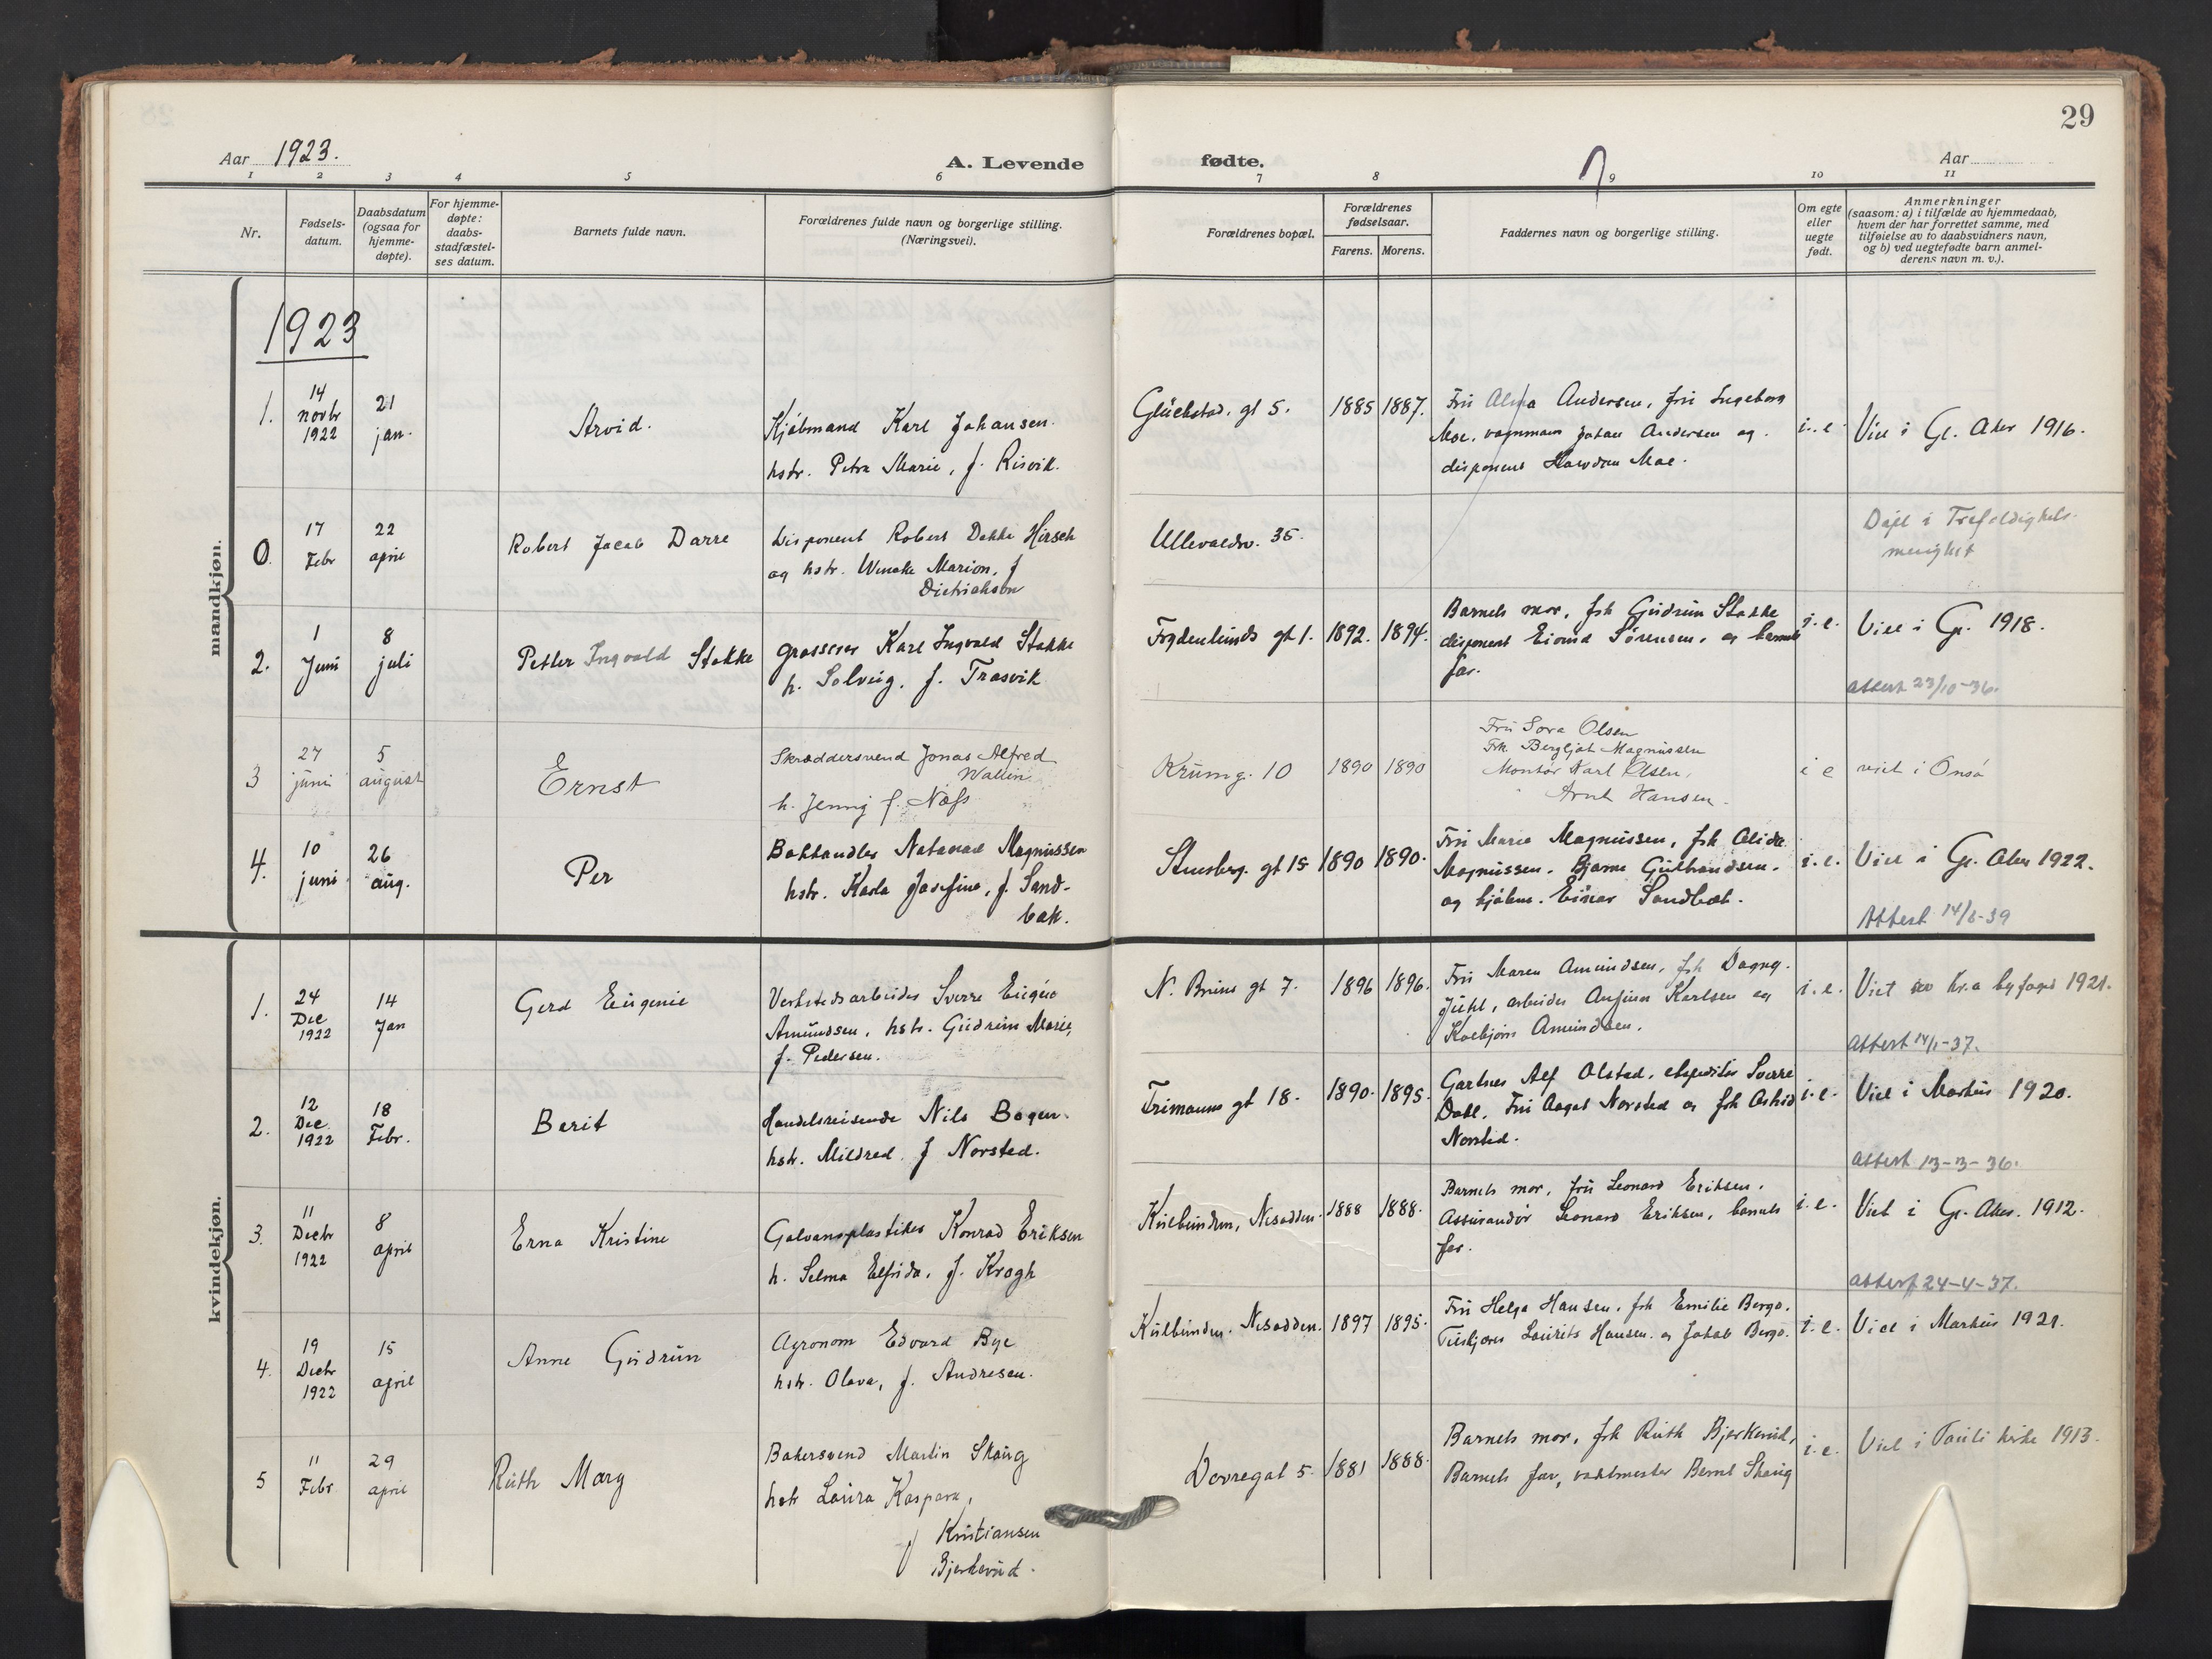 29
Aar 1923.
A. Levende
fødte.
Aar
1 2 3 4 5 6 7 8 9 10 11
Nr.
Fødsels-
datum.
Daabsdatum
(ogsaa for
hjemme-
døpte).
For hjemme-
døpte:
daabs-
stadfæstel-
ses datum.
Barnets fulde navn.
Forældrenes fulde navn og borgerlige stilling.
(Næringsvei).
Forældrenes bopæl.
Forældrenes
fødselsaar.
Farens. Morens.
Faddernes navn og borgerlige stilling.
Om egte
eller
uegte
født.
Anmerkninger
(saasom: a) i tilfælde av hjemmedaab,
hvem der har forrettet samme, med
tilføielse av to daabsvidners navn,
og b) ved uegtefødte barn anmel-
derens navn m. v.).
mandkjøn.
1923
1.
14
novbr
1922
21
jan.
Arvid.
Kjøbmand Karl Johansen.
hstr. Petra Marie, f. Risvik.
Glückstad. gt 5.
1885 1887.
Fru Andersen, fru Ingeborg
Moe, Johan Andersen og
disponent Moe.
i. e.
Viet i Gl. Aker 1916.
0.
17
Febr
22
april
Robert Jacob Darre
Disponent Robert Dekke Hirsch
og hstr. Wencke Marion, f
Dietrichson
Ullevoldsv. 35.
Døpt i Trefoldighets.
menighet
2.
1
Juni
8
juli
Petter Ingvald Stokke
grosserer Karl Ingvald Stokke
h. Solveig. f. Trosvik
Frydenlunds gt 1.
1892. 1894.
Barnets mor, frk Gudrun Stokke
disponent Eivind Sørensen. og barnets
far.
i. e.
Viet i Gr. 1918.
attest 23/10-36.
3
27
juni
5
august
Ernst
Skræddersvend Jonas Alfred
Wallin
h. Jenny f. Næss
Krumg. 10
1890 1890
Fru Sora Olsen
Frk. Bergljot Magnussen
Montør Karl Olsen,
Arnt Hansen.
i e
viet i Onsø
4.
10
juni
26
aug.
Per
Bokhandler Natanael Magnussen
hstr. Karla Josefine, f. Sand-
bak.
Stensberg. gt 15
1890 1890.
Fru Marie Magnussen, frk Alida
Magnussen. Bjarne Gulbrandsen.
og kjøbm. Einar Sandbak.
i. e.
Viet i Gr. Aker 1922.
Attest 14/6-39
kvindekjøn.
1.
24
Dec
1922
14
Jan
Gerd Eugenie
Verkstedsarbeider Sverre Eugén
Amundsen, hstr. Gudrun Marie,
f. Pedersen.
N. Bruns gt 7.
1896 1896.
Fru Maren Amundsen, frk Dagny.
Juhl, arbeider Anfinn Karlsen og
Kolbjørn Amundsen.
i. e.
Viet av Kr.a byfogd 1921.
attest 14/1-37.
2.
12
Dec.
1922
18
Febr.
Berit
Handelsreisende Nils Bogen.
hstr. Mildred. f Norsted.
Frimanns gt 18.
1890. 1895.
Gartner Alf Olstad, ekspeditør Sverre
Dahl. Fru Aagot Norsted og frk Astrid
Norsted.
i. e.
Viet i Markus 1920.
attest 13-3-36.
3.
11
Decbr
1922
8
april
Erna Kristine
Galvanoplastiker Konrad Eriksen
h. Selma Elfrida. f. Krogh
Kirkebunden, Nesodden.
1888 1888.
Barnets mor, fru Leonard Eriksen.
Assurandør Leonard Eriksen, barnets
far.
i. e.
Viet i Gr. Aker. 1912.
attest 24-4-37.
4.
19
Decbr
1922
15
april
Anne Gudrun
Agronom Edvard Bye
hstr. Olava, f. Andresen.
Nesodden.
1897 1895.
Fru Helga Hansen. frk Emilie Berge.
Laurits Hansen. og Jakob Berge.
i. e.
Viet i Markus 1921.
5
11
Febr.
29
april
Ruth Mary
Bakersvend Martin Skaug
hstr Laura Kaspara,
f Kristiansen
Bjerkerud.
Dovregat 5.
1881 1888.
Barnets mor, frk Ruth Bjerkerud,
Barnets far, vaktmester Bernt Skaug
i. e.
Viet i Pauli kirke 1913.